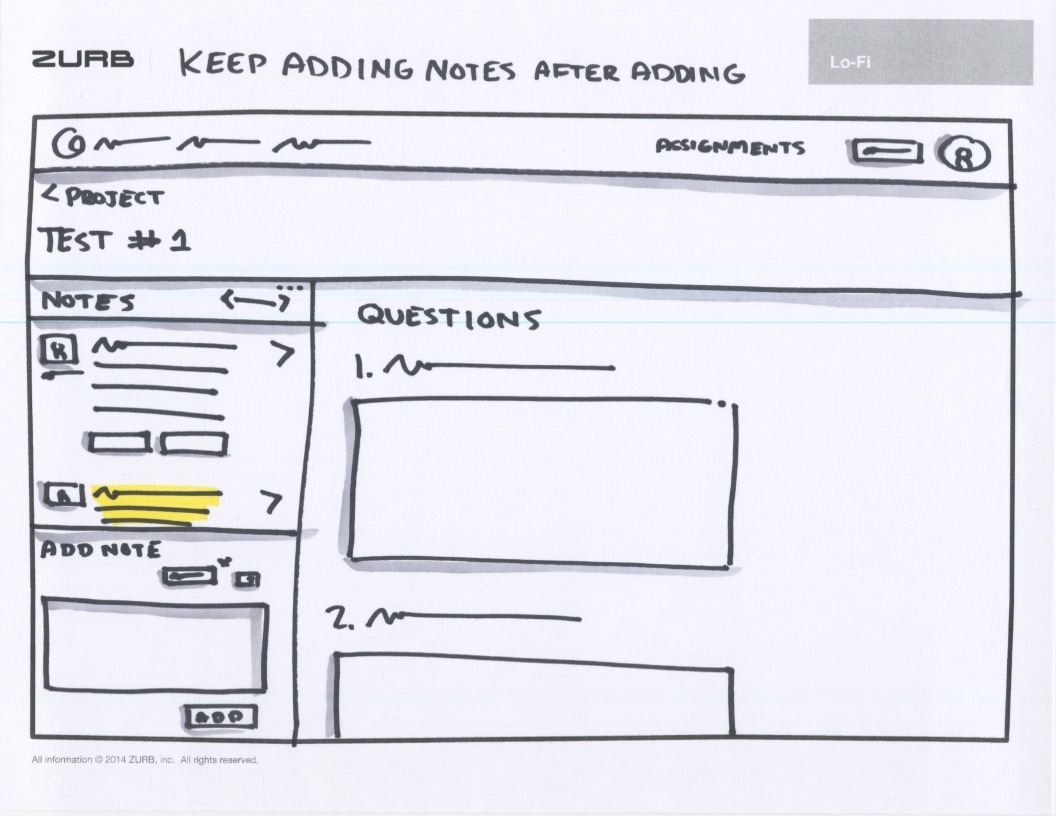 ZURB KEEP ADDING NOTES AFTER ADDING
Lo-Fi
ASSIGNMENTS R
< PROJECT
TEST # 1
NOTES
QUESTIONS
1.
R
2.
ADD NOTE
ADD
All information © 2014 ZURB, inc. All rights reserved.